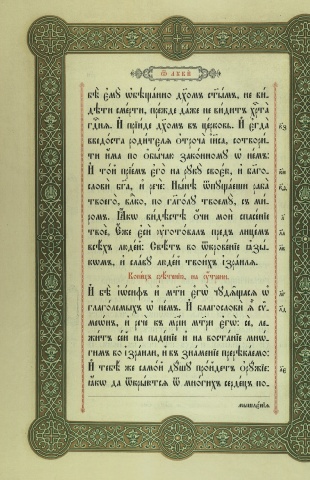 Ѿ ЛꙊКИ
бѣ̀ є҆мꙋ̀ ѡ҆бѣща́нно дх҃омъ ст҃ы́мъ, не ви-
дѣ́ти сме́рти, пре́жде да́же не ви́дитъ хрⷭ҇та̀
гдⷭ҇нѧ. И҆ прїи́де дх҃омъ въ це́рковь. И҆ є҆гда̀
введо́ста роди́телѧ ѻ҆троча̀ і҆и҃са, сотвори́-
ти и҆́ма по ѡ҆бы́чаю зако́нномꙋ ѡ҆ не́мъ:
И҆ то́й прїе́мъ є҆го̀ на рꙋ́кꙋ своє́ю, и҆ баго-
словѝ бг҃а, и҆ речѐ: Ны́нѣ ѿпꙋща́еши раба̀
твоего̀, влⷣко, по гл҃го́лꙋ твоемꙋ̀, съ ми́-
ромъ. Ꙗ҆́кѡ ви́дѣстѣ ѻ҆́чи моѝ спасе́нїе
твоѐ, Є҆́же є҆сѝ ᲂу҆гото́валъ пред̾ лице́мъ
всѣ́хъ люде́й: Свѣ́тъ во ѿкрове́нїе ꙗ҆зы́-
кѡмъ, и҆ сла́вꙋ люде́й твои́хъ і҆зра́илѧ.
Коне́цъ срѣ́тенїю, на ᲂу҆́трени.
И҆ бѣ̀ і҆ѡ́сифъ и҆ мт҃и є҆гѡ̀ чꙋдѧ̑щасѧ ѡ҆
глаго́лемыхъ ѡ҆ не́мъ. И҆ благословѝ ѧ҆̀ сѷ-
меѡ́нъ, и҆ речѐ къ мр҃і́и мт҃ри є҆гѡ̀: сѐ, ле-
жи́тъ се́й на паде́нїе и҆ на воста́нїе мнѡ́-
гимъ во і҆зра́или, и҆ въ зна́менїе пререка́емо:
И҆ тебѣ́ же само́й дꙋ́шꙋ про́йдетъ ѻ҆рꙋ́жїе:
ꙗ҆́кѡ да ѿкры́ютсѧ ѿ мно́гихъ серде́цъ по-
мышлє́нїѧ